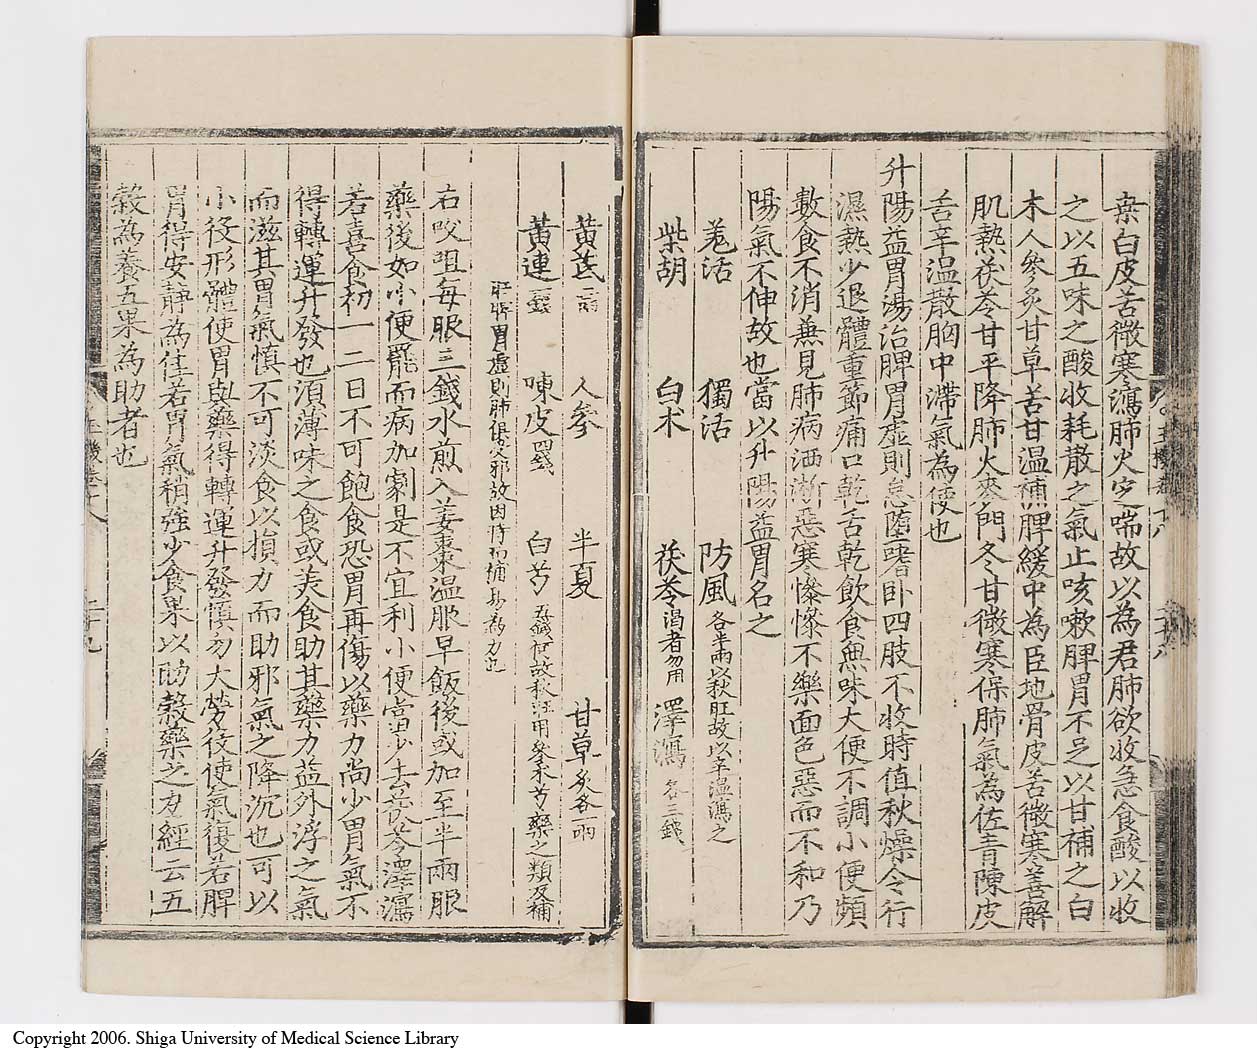 桒白皮苦微寒瀉肺火定喘故以為君肺欲收急食酸以收
之以五味之酸收耗散之氣止咳嗽脾胃不足以甘補之白
木人參炙甘草苦甘温補脾緩中為臣地骨皮苦微寒善解
肌熱茯苓甘平降肺火麥門冬甘微寒保肺氣為佐青陳皮
舌辛温散胸中滯氣為使也
升陽益胃湯治脾胃虛則怠墮嗜卧四肢不收時值秋燥令行
濕熱少退體重節痛口乾舌乾飲食無味大便不調小便頻
數食不消兼見肺病洒淅惡寒慘慘不樂面色惡而不和乃
陽氣不伸故也當以升陽益胃名之
羗活 獨活 防風各半兩以秋旺故以辛温瀉之
柴胡 白术 茯苓渴者勿用 澤瀉各三錢
黃芪二兩 人參 半夏 甘草炙各一兩
黃連一錢 陳皮四錢 白芍五錢何故秋旺用參朮芍藥之類反補
肺脾胃虛則肺俱受邪故因時而補易為力也
右㕮咀每服三錢水煎入姜棗温服早飯後或加至半兩服
藥後如小便罷而病加劇是不宜利小便當少去茯苓澤瀉
若喜食初一二日不可飽食恐胃再傷以藥力尚少胃氣不
得轉運升發也須薄味之食或美食助其藥力益升浮之氣
而滋其胃氣慎不可淡食以損藥力而助邪氣之降沉也可以
小役形體使胃與藥得轉運升發慎勿大勞役使氣復若脾
胃得安靜為佳若胃氣稍強少食果以助穀藥之力經云五
穀為養五果為助者也